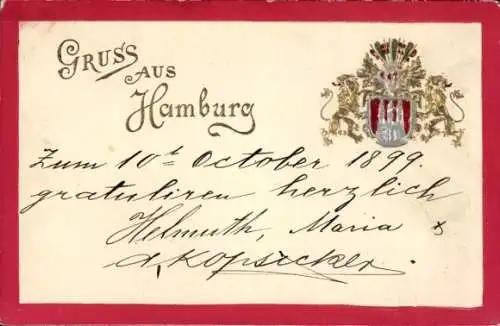 Gruss
aus
Hamburg
Zum 10t October 1899.
gratuliren herzlich
Helmuth, Maria
&